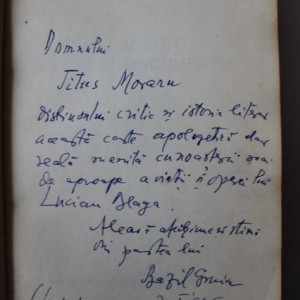 Domnului
Titus Moraru
distinsului critic și istoric literar
această carte apologetică dar
reală menită cunoașterii mai
de aproape a vieții și operei lui
Lucian Blaga.
Aleasă stimă
din partea lui
Bazil Gruia